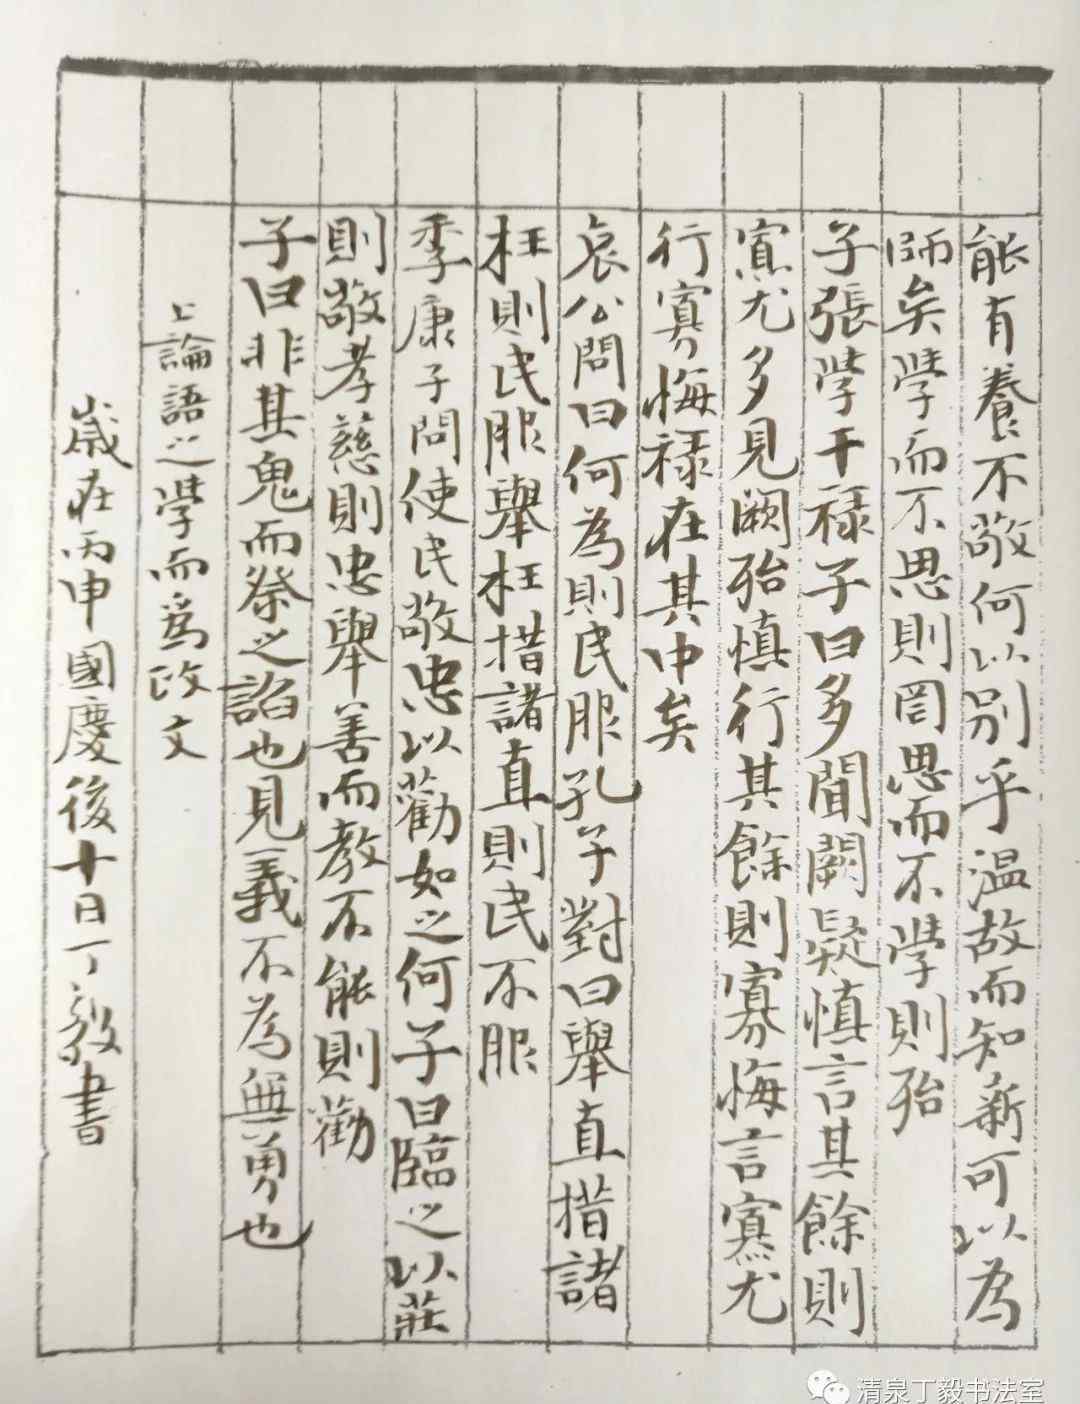 能有養不敬何以别乎温故而知新可以為
師矣學而不思則罔思而不學則殆
子張學干禄子曰多聞闕疑慎言其餘則
寡尤多見闕殆慎行其餘則寡悔言寡尤
行寡悔禄在其中矣
哀公問曰何為則民服孔子對曰舉直措諸
枉則民服舉枉措諸直則民不服
季康子問使民敬忠以勸如之何子曰臨之以莊
則敬孝慈則忠舉善而教不能則勸
子曰非其鬼而祭之諂也見義不為無勇也
上論語之學而為政文
歲在丙申國慶後十日丁毅書
清泉丁毅书法室